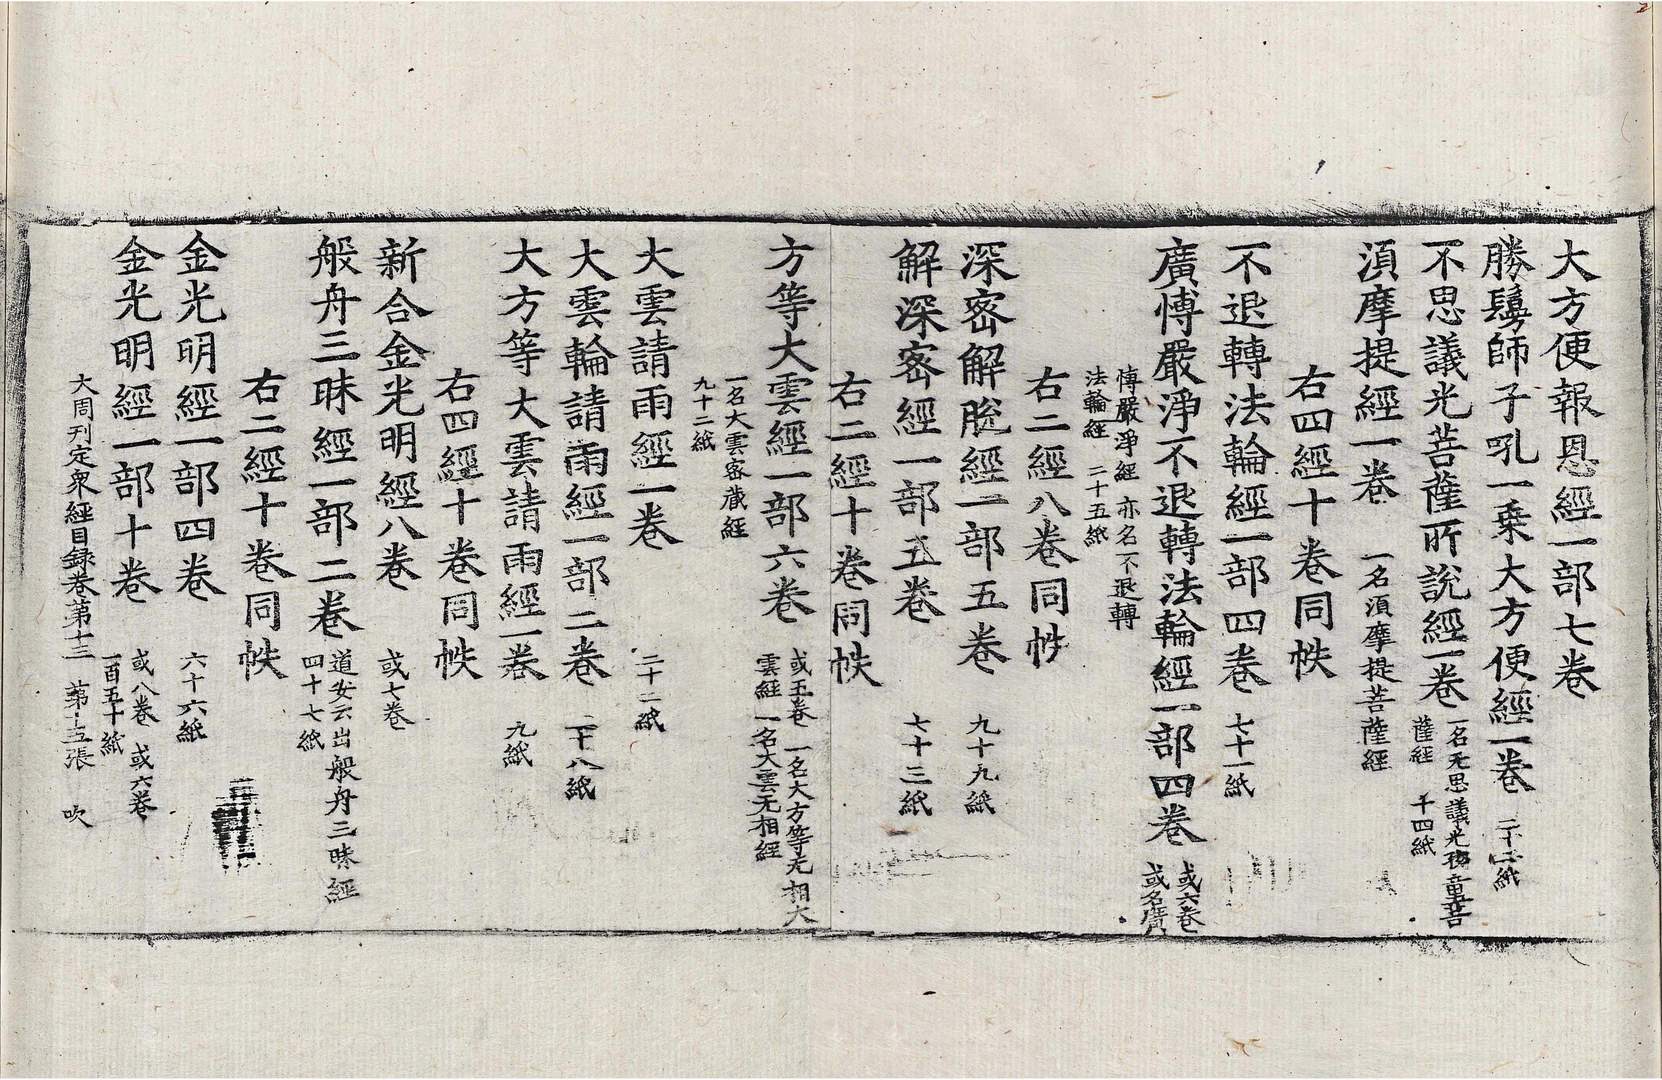 大方便報恩經一部七卷
勝鬘師子吼一乗大方便經一卷 二十二紙
不思議光菩薩所說經一卷 一名无思議光孩童菩
薩經 十四紙
湏摩提經一卷 一名湏摩提菩薩經
右四經十卷同帙
不退轉法輪經一部四卷 七十一紙
廣愽嚴淨不退轉法輪經一部四卷 或六卷
或名廣
愽嚴淨經 亦名不退轉
法輪經 二十五紙
右二經八卷同帙
深密解脫經一部五卷 九十九紙
解深密經一部五卷 七十三紙
右二經十卷同帙
方等大雲經一部六卷 或五卷 一名大方等无相大
雲經 一名大雲无相經
一名大雲密藏經
九十二紙
大雲請雨經一卷 二十二紙
大雲輪請雨經一部二卷 二十八紙
大方等大雲請雨經一卷 九紙
右四經十卷同帙
新合金光明經八卷 或七卷
般舟三昧經一部二卷 道安云出般舟三昧經
四十七紙
右二經十卷同帙
金光明經一部四卷 六十六紙
金光明經一部十卷 或八卷 或六卷
一百五十紙
大周刊定衆經目録卷第十三 第十五張 吹